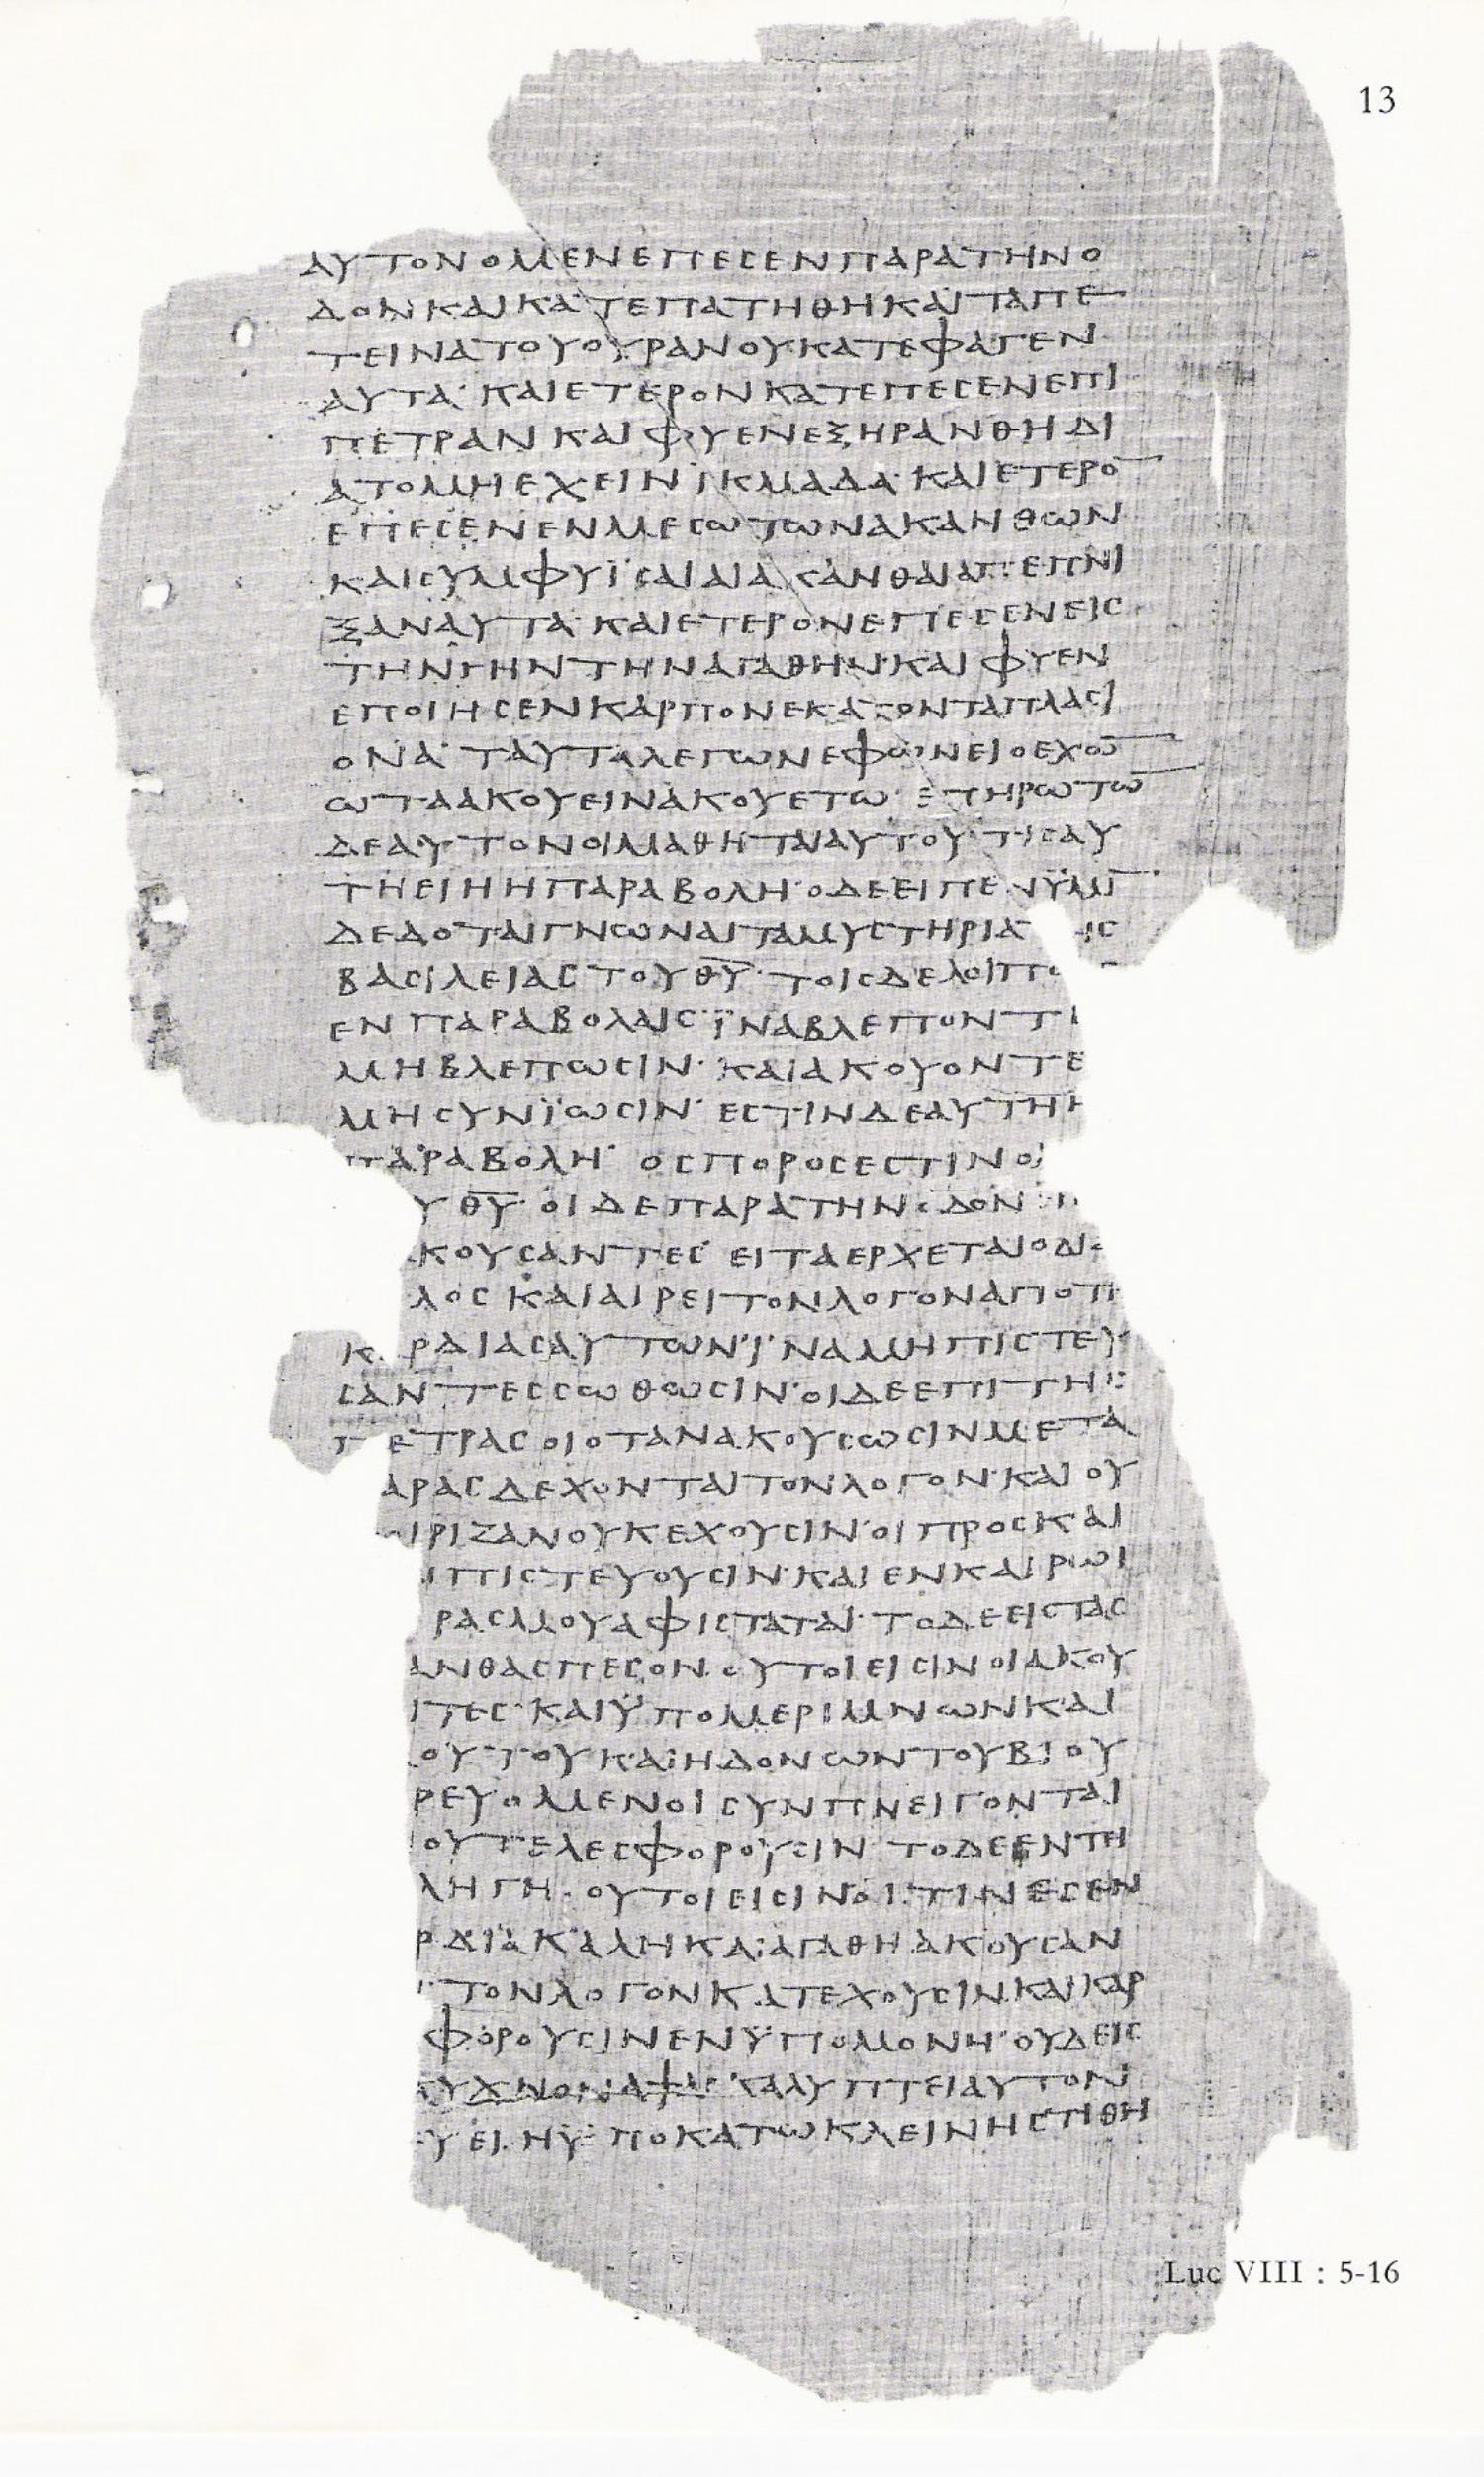 13
ΑΥΤΟΝ Ο ΜΕΝ ΕΠΕCΕΝ ΠΑΡΑ ΤΗΝ Ο
ΔΟΝ ΚΑΙ ΚΑΤΕΠΑΤΗΘΗ ΚΑΙ ΤΑ ΠΕ
ΤΕΙΝΑ ΤΟΥ ΟΥΡΑΝΟΥ ΚΑΤΕΦΑΓΕΝ
ΑΥΤΑ· ΚΑΙ ΕΤΕΡΟΝ ΚΑΤΕΠΕCΕΝ ΕΠΙ
ΠΕΤΡΑΝ ΚΑΙ ΦΥΕΝ ΕΞΗΡΑΝΘΗ ΔΙ
Α ΤΟ ΜΗ ΕΧΕΙΝ ΪΚΜΑΔΑ· ΚΑΙ ΕΤΕΡΟ̅
ΕΠΕCΕΝ ΕΝ ΜΕCΩ ΤΩΝ ΑΚΑΝΘΩΝ
ΚΑΙ CΥΜΦΥΪCΑΙ ΑΙ ΑΚΑΝΘΑΙ ΑΠΕΠΝΙ
ΞΑΝ ΑΥΤΑ· ΚΑΙ ΕΤΕΡΟΝ ΕΠΕCΕΝ ΕΙC
ΤΗΝ ΓΗΝ ΤΗΝ ΑΓΑΘΗΝ· ΚΑΙ ΦΥΕΝ
ΕΠΟΙΗCΕΝ ΚΑΡΠΟΝ ΕΚΑΤΟΝΤΑΠΛΑCΙ
ΟΝΑ· ΤΑΥΤΑ ΛΕΓΩΝ ΕΦΩΝΕΙ Ο ΕΧΩ̅
ΩΤΑ ΑΚΟΥΕΙΝ ΑΚΟΥΕΤΩ· ΕΠΗΡΩΤΩ̅
ΔΕ ΑΥΤΟΝ ΟΙ ΜΑΘΗΤΑΙ ΑΥΤΟΥ· ΤΙC ΑΥ
ΤΗ ΕΙΗ Η ΠΑΡΑΒΟΛΗ· Ο ΔΕ ΕΙΠΕΝ ΥΜΙ̅
ΔΕΔΟΤΑΙ ΓΝΩΝΑΙ ΤΑ ΜΥCΤΗΡΙΑ ΗC
ΒΑCΙΛΕΙΑC ΤΟΥ Θ̅Υ̅· ΤΟΙC ΔΕ ΛΟΙΠΟ
ΕΝ ΠΑΡΑΒΟΛΑΙC· ΪΝΑ ΒΛΕΠΟΝΤΕ
ΜΗ ΒΛΕΠΩCΙΝ· ΚΑΙ ΑΚΟΥΟΝΤΕ
ΜΗ CΥΝΪΩCΙΝ· ΕCΤΙΝ ΔΕ ΑΥΤΗ Η
ΠΑΡΑΒΟΛΗ· Ο CΠΟΡΟC ΕCΤΙΝ Ο
Υ Θ̅Υ̅· ΟΙ ΔΕ ΠΑΡΑ ΤΗΝ ΟΔΟΝ
ΚΟΥCΑΝΤΕC· ΕΙΤΑ ΕΡΧΕΤΑΙ Ο ΔΙΑ
ΛΟC ΚΑΙ ΑΙΡΕΙ ΤΟΝ ΛΟΓΟΝ ΑΠΟ Τ
Κ ΡΔΙΑC ΑΥΤΩΝ· ΪΝΑ ΜΗ ΠΙCΤΕΥ
CΑΝΤΕC CΩΘΩCΙΝ· ΟΙ ΔΕ ΕΠΙ ΤΗC
Π ΕΤΡΑC ΟΙ ΟΤΑΝ ΑΚΟΥCΩCΙΝ ΜΕΤΑ
ΑΡΑC ΔΕΧΟΝΤΑΙ ΤΟΝ ΛΟΓΟΝ· ΚΑΙ ΟΥ
Ι ΡΙΖΑΝ ΟΥΚ ΕΧΟΥCΙΝ· ΟΙ ΠΡΟC ΚΑΙ
Ι ΠΙCΤΕΥΟΥCΙΝ· ΚΑΙ ΕΝ ΚΑΙΡΩΙ
ΡΑCΜΟΥ ΑΦΙCΤΑΤΑΙ· ΤΟ ΔΕ ΕΙC ΤΑC
ΑΝΘΑC ΠΕCΟΝ· ΟΥΤΟΙ ΕΙCΙΝ ΟΙ ΑΚΟΥ
ΤΕC· ΚΑΙ ΫΠΟ ΜΕΡΙΜΝΩΝ ΚΑΙ
ΟΥΤΟΥ ΚΑΙ ΗΔΟΝΩΝ ΤΟΥ ΒΙΟΥ
ΡΕΥΟΜΕΝΟΙ CΥΝΠΝΕΙΓΟΝΤΑΙ
ΟΥ ΤΕΛΕCΦΟΡΟΥCΙΝ· ΤΟ ΔΕ ΕΝ ΤΗ
ΛΗ ΓΗ· ΟΥΤΟΙ ΕΙCΙΝ ΟΙΤΙΝΕC ΕΝ
ΡΔΙΑ ΚΑΛΗ ΚΑΙ ΑΓΑΘΗ ΑΚΟΥCΑΝ
ΤΟΝ ΛΟΓΟΝ ΚΑΤΕΧΟΥCΙΝ ΚΑΙ ΚΑΡ
ΦΟΡΟΥCΙΝ ΕΝ ΫΠΟΜΟΝΗ· ΟΥΔΕΙC
ΛΥΧΝΟΝ ΑΨΑC ΚΑΛΥΠΤΕΙ ΑΥΤΟΝ
ΥΕΙ· Η ΫΠΟΚΑΤΩ ΚΛΕΙΝΗC ΤΙΘΗ
Luc VIII : 5-16